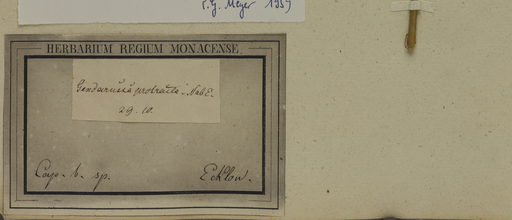 F. G. Meyer 1957
HERBARIUM REGIUM MONACENSE.
Gendarussa protracta NabE.
29. 10.
Cap. b. sp. Ecklon.